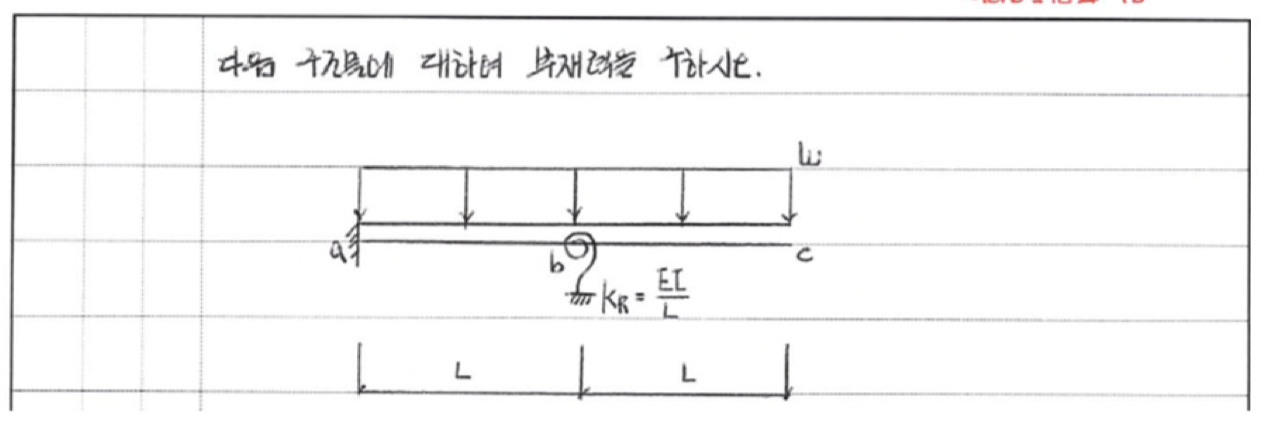 다음 구조물에 대하여 부재력을 구하시오.
w
a
b
c
K_R = EI/L
L
L